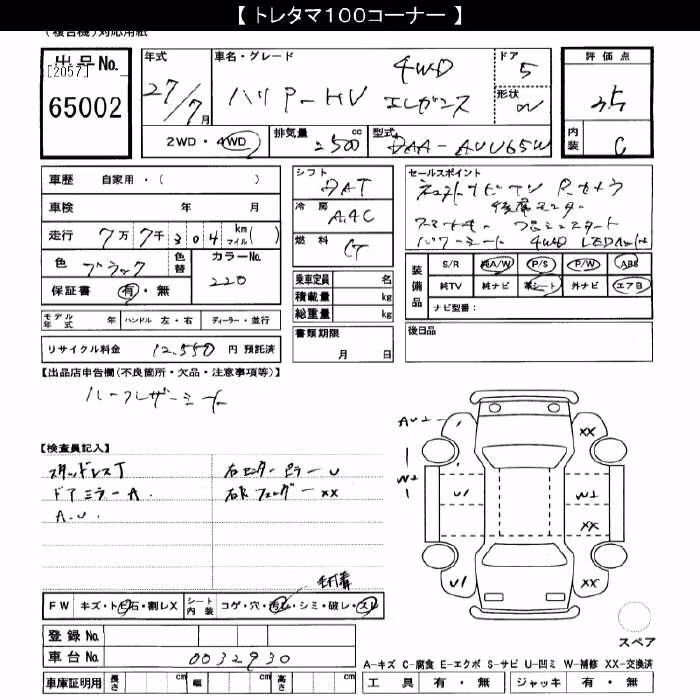 【 トレタマ100コーナー 】
(複合機)対応用紙
出品No.
[2057]
65002
年式 27/7月
車名・グレード ハリアーHV 4WD エレガンス
ドア 5
形状 W
評価点 3.5
内装 C
2WD・4WD
排気量 2500 cc
型式 DAA-AVU65W
車歴 自家用・( )
車検 年 月
走行 7万7千304 km マイル( )
色 ブラック
色替
カラーNo. 220
保証書 有・無
シフト DAT
冷房 AAC
燃料
乗車定員 名
積載量 kg
総重量 kg
セールスポイント
スマートキー プッシュスタート
パワーシート 4WD LED
装備品
S/R 純A/W P/S P/W ABS
純TV 純ナビ 革シート 外ナビ エアB
ナビ型番:
モデル年式 年 ハンドル 左・右 ディーラー・並行
書類期限 月 日
後日品
リサイクル料金 12,550 円 預託済
【出品店申告欄(不良箇所・欠品・注意事項等)】
ハーフレザーシート
【検査員記入】
スタッドレスT 右センターピラーU
ドアミラーA. 右Rフェンダー XX
A.U.
AU1
XX
W1
U1
W1
XX
U1
XX
FW キズ・トビ石・割レX シート内装 コゲ・穴・汚レ・シミ・破レ・スレ
登録No.
車台No. 0032930
車庫証明用 長さ cm 幅 cm 高さ cm
スペア
A-キズ C-腐食 E-エクボ S-サビ U-凹ミ W-補修 XX-交換済
工具 有・無 ジャッキ 有・無